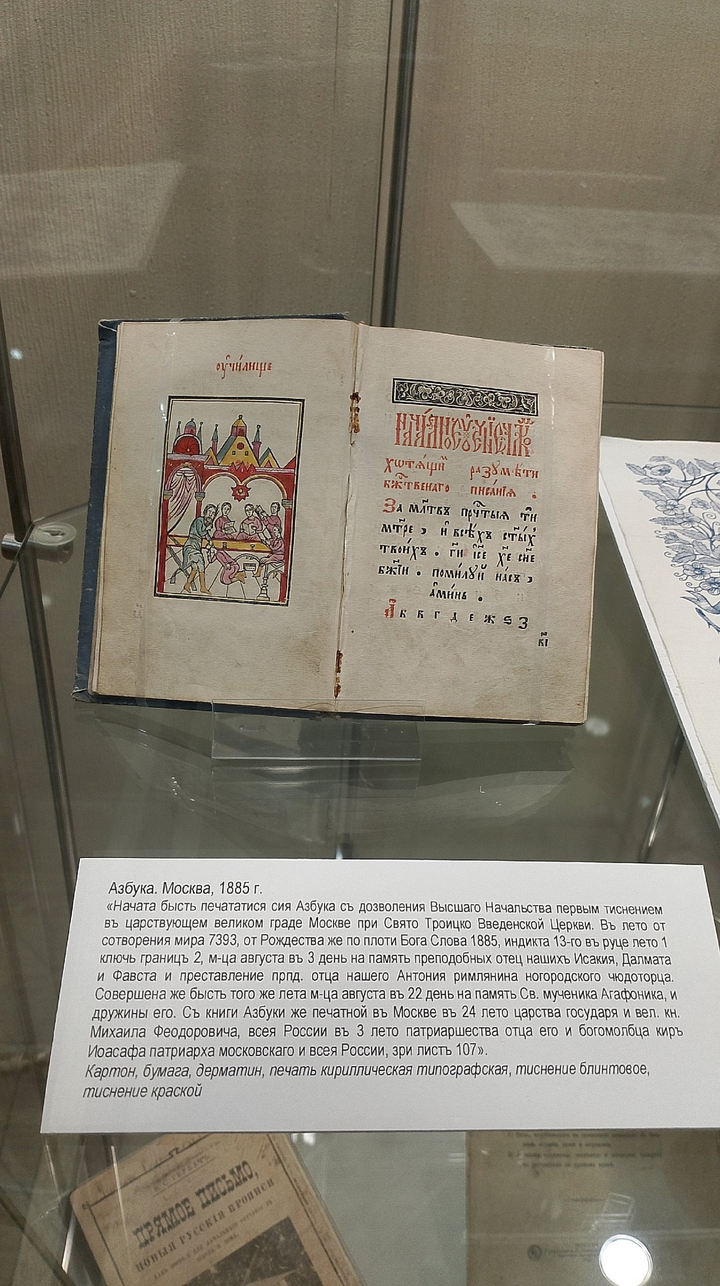 ѹ҆чи́лище
хотѧ́щимъ разꙋмѣ́ти
бж҃твенаго писа́нїѧ .
За мл҃твъ прⷱ҇тыѧ тѝ
мт҃ре , и҆ всѣ́хъ ст҃ы́хъ
твои́хъ . гдⷭ҇и і҆с҃е хе҃ сн҃е
бж҃їи . поми́лꙋй на́съ ,
а҆ми́нь .
А б в г д е ж ѕ з
Азбука. Москва, 1885 г.
«Начата бысть печататися сия Азбука съ дозволения Высшаго Начальства первым тиснением
въ царствующем великом граде Москве при Свято Троицко Введенской Церкви. Въ лето от
сотворения мира 7393, от Рождества же по плоти Бога Слова 1885, индикта 13-го въ руце лето 1
ключь границъ 2, м-ца августа въ 3 день на память преподобных отец нашихъ Исакия, Далмата
и Фавста и преставление прпд. отца нашего Антония римлянина ногородского чюдоторца.
Совершена же бысть того же лета м-ца августа въ 22 день на память Св. мученика Агафоника, и
дружины его. Съ книги Азбуки же печатной въ Москве въ 24 лето царства государя и вел. кн.
Михаила Феодоровича, всея России въ 3 лето патриаршества отца его и богомолбца киръ
Иоасафа патриарха московскаго и всея России, зри листъ 107».
Картон, бумага, дерматин, печать кириллическая типографская, тиснение блинтовое,
тиснение краской
ПРЯМОЕ ПИСЬМО,
НОВЫЯ РУССКІЯ ПРОПИСИ